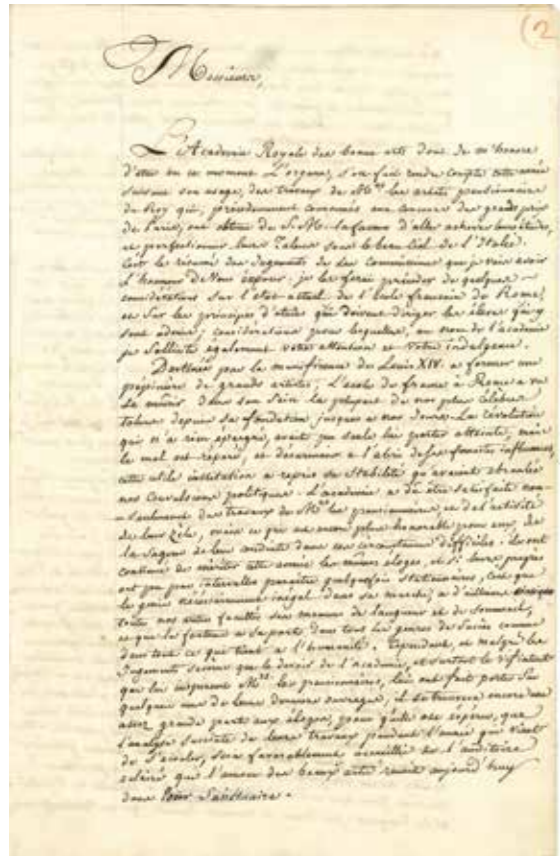 (2
Messieurs,
L'Academie Royale des beaux arts dont je m'honore
d'etre en ce moment l'organe, s'est fait rendre compte cette année
suivant son usage, des travaux de Mrs les artistes pensionnaires
du Roy qui, précédemment couronnés aux concours des grands prix
de Paris, ont obtenu de S.M. la faveur d'aller achever leurs études,
et perfectionner leurs Talens sous le beau Ciel de l'Italie.
C'est le résumé des Jugements de Les Commissions que je vais avoir
l'honneur de Vous exposer. je les ferai précéder de quelques
considérations sur l'état actuel de l'école française de Rome,
et sur les principes d'études qui doivent diriger les élèves qui y
sont admis; considérations pour lesquelles, au nom de l'académie
je Sollicite également votre attention et votre indulgence.
Destinée par la munificence de Louis XIV. a former une
pépinière de grands artistes, L'école de france à Rome a vu
se mûrir dans son sein la plupart de nos plus célèbres
talens depuis sa fondation jusques a nos Jours. La révolution
qui n'a rien épargné, avait pu seule lui porter atteinte, mais
le mal est réparé, et désormais a l'abri de ses funestes influences,
cette utile institution a repris sa Stabilité qu'avaient ébranlée
nos Convulsions politiques. L'academie a dû être satisfaite non-
seulement des travaux de Mrs les pensionnaires, et de l'activité
de leur Zèle, mais ce qui est encore plus honorable pour eux, de
la sagesse de leur conduite dans ces circonstances difficiles. ils ont
continué de mériter cette année les mêmes éloges, et si leurs progrès
ont pu par intervalles paraître quelquefois Stationnaires, c'est que
le génie nécessairement inégal dans sa marche, a d'ailleurs
toutes nos autres facultés ses momens de langueur et de sommeil,
et que la fortune a sa part dans tous les genres de Succès comme
dans tout ce qui tient a l'humanité. Cependant, et malgré les
Jugements sévères que le devoir de l'académie, et surtout le vif intérêt
que lui inspirent Mrs les pensionnaires, lui ont fait porter sur
quelques uns de leurs derniers ouvrages, il se trouvera encore une
assez grande part aux éloges, pour qu'elle ose espérer, que
l'analyse succincte de leurs travaux pendant l'année qui vient
de s'écouler, sera favorablement accueillie de l'auditoire
éclairé que l'amour des beaux arts réunit aujourd'huy
dans leur Sanctuaire.